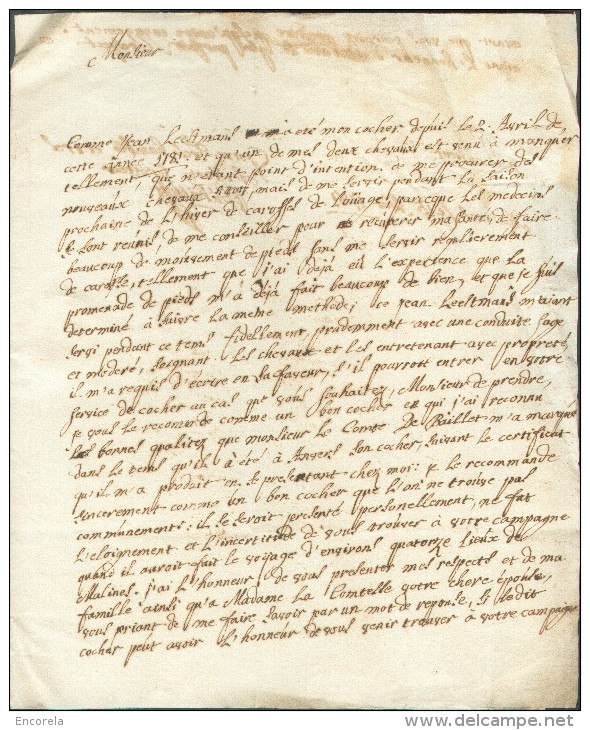 Monsieur
Comme Jean Leestmans m'a été mon cocher depuis le 2 Avril de
cette année 1781. et qu'un de mes deux chevaux est venu à manquer
tellement, que n'etant point d'intention de me procurer des
nouveaux chevaux mais de me servir pendant la saison
prochaine de l'hiver de carosses de voiiage, parceque les medecins
se sont reunis, de me conseiller pour recuperer ma santé, de faire
beaucoup de mouvement de pieds sans me servir
de carosse, tellement que j'ai dejà eû l'experience que la
promenade de pieds m'a dejà fait beaucoup de bien, et que je suis
determiné à suivre la meme methode; ce jean Leestmans m'aiant
servi pendant ce tems fidellement, prudemment avec une conduite sage
et moderé, soignant les chevaux et les entretenant avec propreté,
il m'a requis d'écrire en sa faveur, s'il pourroit entrer en votre
service de cocher au cas que vous souhaitez, Monsieur de prendre,
je vous le recommende comme un bon cocher et qui j'ai reconnu
les bonnes qualitez que monsieur le Comte De Baillet m'a marqué
dans le tems qu'il a été à Anvers son cocher, suivant le certificat
qu'il m'a produit en se presentant chez moi: je le recommande
sincerement comme un bon cocher que l'on ne trouve pas
communement: il se seroit presenté personellement, ne fut
l'eloignement et l'incertitude de vous trouver à votre campagne
quand il auroit fait le voyage d'environs quatorze lieux de
Malines. j'ai l'honneur de vous presenter mes respects et de ma
famille ainsi qu'a Madame la Comtesse votre chere épouse,
vous priant de me faire savoir par un mot de reponse, si ledit
cocher peut avoir l'honneur de vous venir trouver à votre campagne
Encorela
delcampe.net